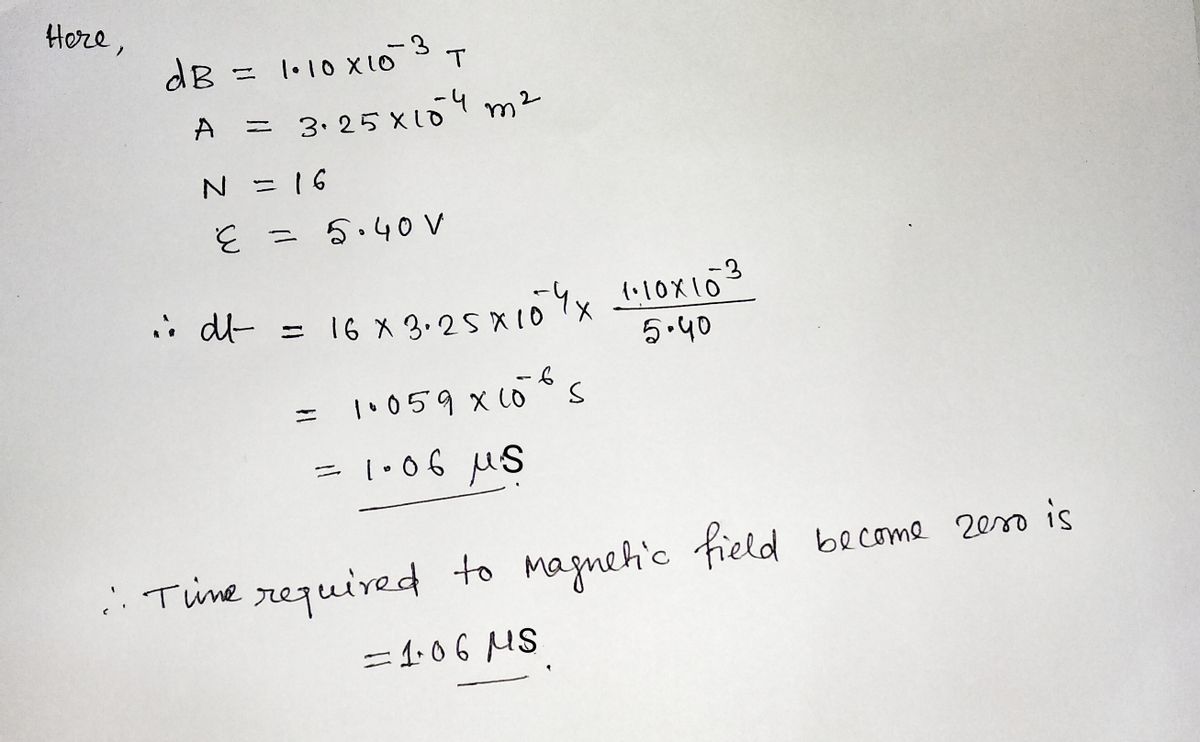 Here,
dB = 1.10 x10⁻³ T
A = 3.25 x10⁻⁴ m²
N = 16
ε = 5.40 V
∴ dt = 16 x 3.25 x 10⁻⁴ x 1.10x10⁻³ / 5.40
= 1.059 x 10⁻⁶ s
= 1.06 μs.
∴ Time required to magnetic field become zero is
= 1.06 μs.